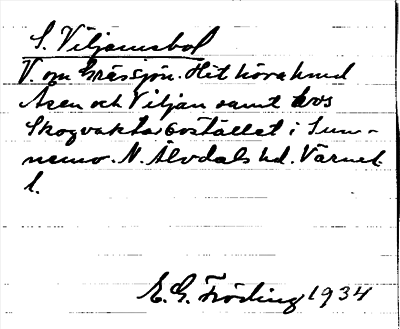 S. Viljamsbol
V. om Gråssjön. Hit höra hmd
Åsen och Viljan samt kvs
Skogvaktarbostället i Sun-
nemo. N. Älvdals hd. Värml.
l.
E. G. Fröding 1934